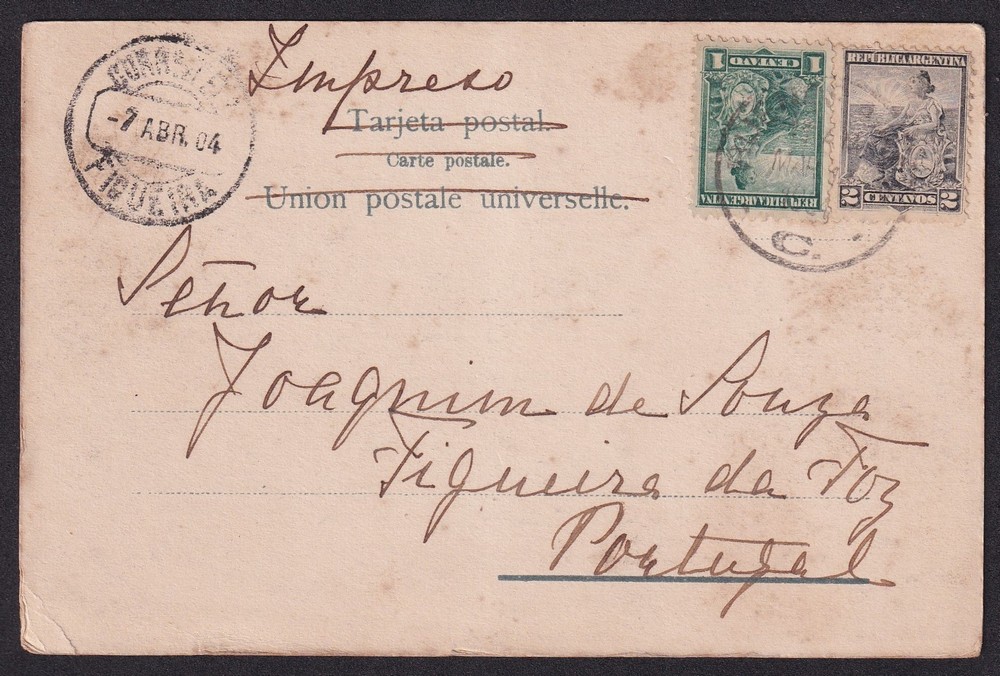 CORREIO
-7 ABR. 04
FIGUEIRA
Impreso
Tarjeta postal.
Carte postale.
Union postale universelle.
1 CENTAVO 1
REPUBLICA ARGENTINA
REPUBLICA ARGENTINA
2 CENTAVOS 2
C.
Señor
Joaquim de Souza
Figueira da Foz
Portugal